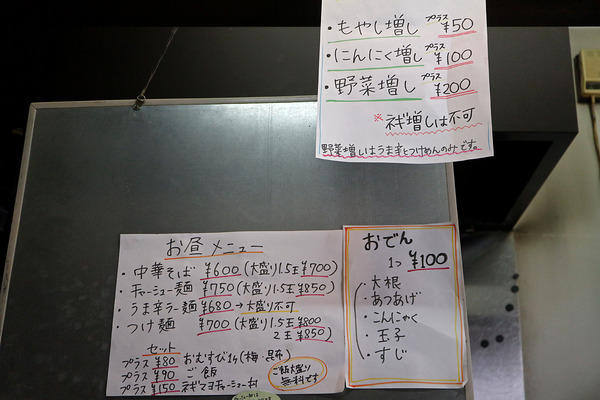 ・もやし増し プラス ¥50
・にんにく増し プラス ¥100
・野菜増し プラス ¥200
※ネギ増しは不可
野菜増しはうま辛とつけめんのみです。
お昼メニュー
・中華そば ¥600(大盛り1.5玉 ¥700)
・チャーシュー麺 ¥750(大盛り1.5玉 ¥850)
・うま辛ラー麺 ¥680→大盛り不可
・つけ麺 ¥700(大盛り1.5玉 ¥800
2玉 ¥850)
セット
プラス ¥80 おむすび1ケ(梅・昆布)
プラス ¥90 ご飯
プラス ¥150 ネギマヨチャーシュー
ご飯大盛り
無料です
おでん
1つ ¥100
・大根
・あつあげ
・こんにゃく
・玉子
・すじ